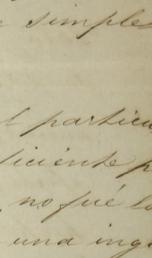 simples
particu
iciente p
no fué lo
una ing